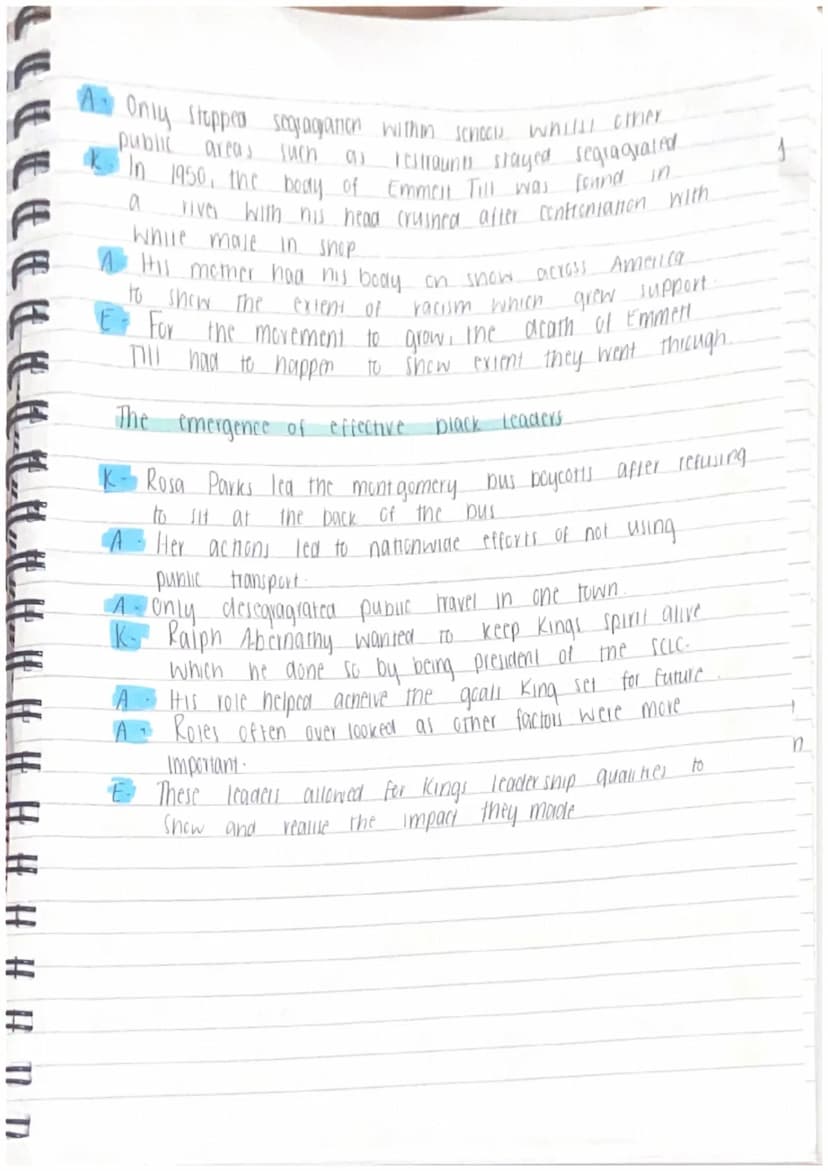 A- Only stopped segragation within schools whilst other
public areas such as restraunts stayed segragrated
K- In 1950, the body of Emmett Till was found in
a river with his head crushed after confrontation with
white male in shop
A- His mother had his body on show across America
to show the extent of racism which grew support.
E- For the movement to grow, the death of Emmett
Till had to happen to show extent they went through.
The emergence of effective black leaders
K- Rosa Parks led the montgomery bus boycotts after refusing
to sit at the back of the bus
A- Her actions led to nationwide efforts of not using
public transport.
A- Only desegragrated public travel in one town.
K- Ralph Abernathy wanted to keep Kings spirit alive
which he done so by being president of the SCLC.
A- His role helped acheive the goals King set for future.
A- Roles often over looked as other factors were more
important.
E- These leaders allowed for Kings leadership qualities to
show and realise the impact they made